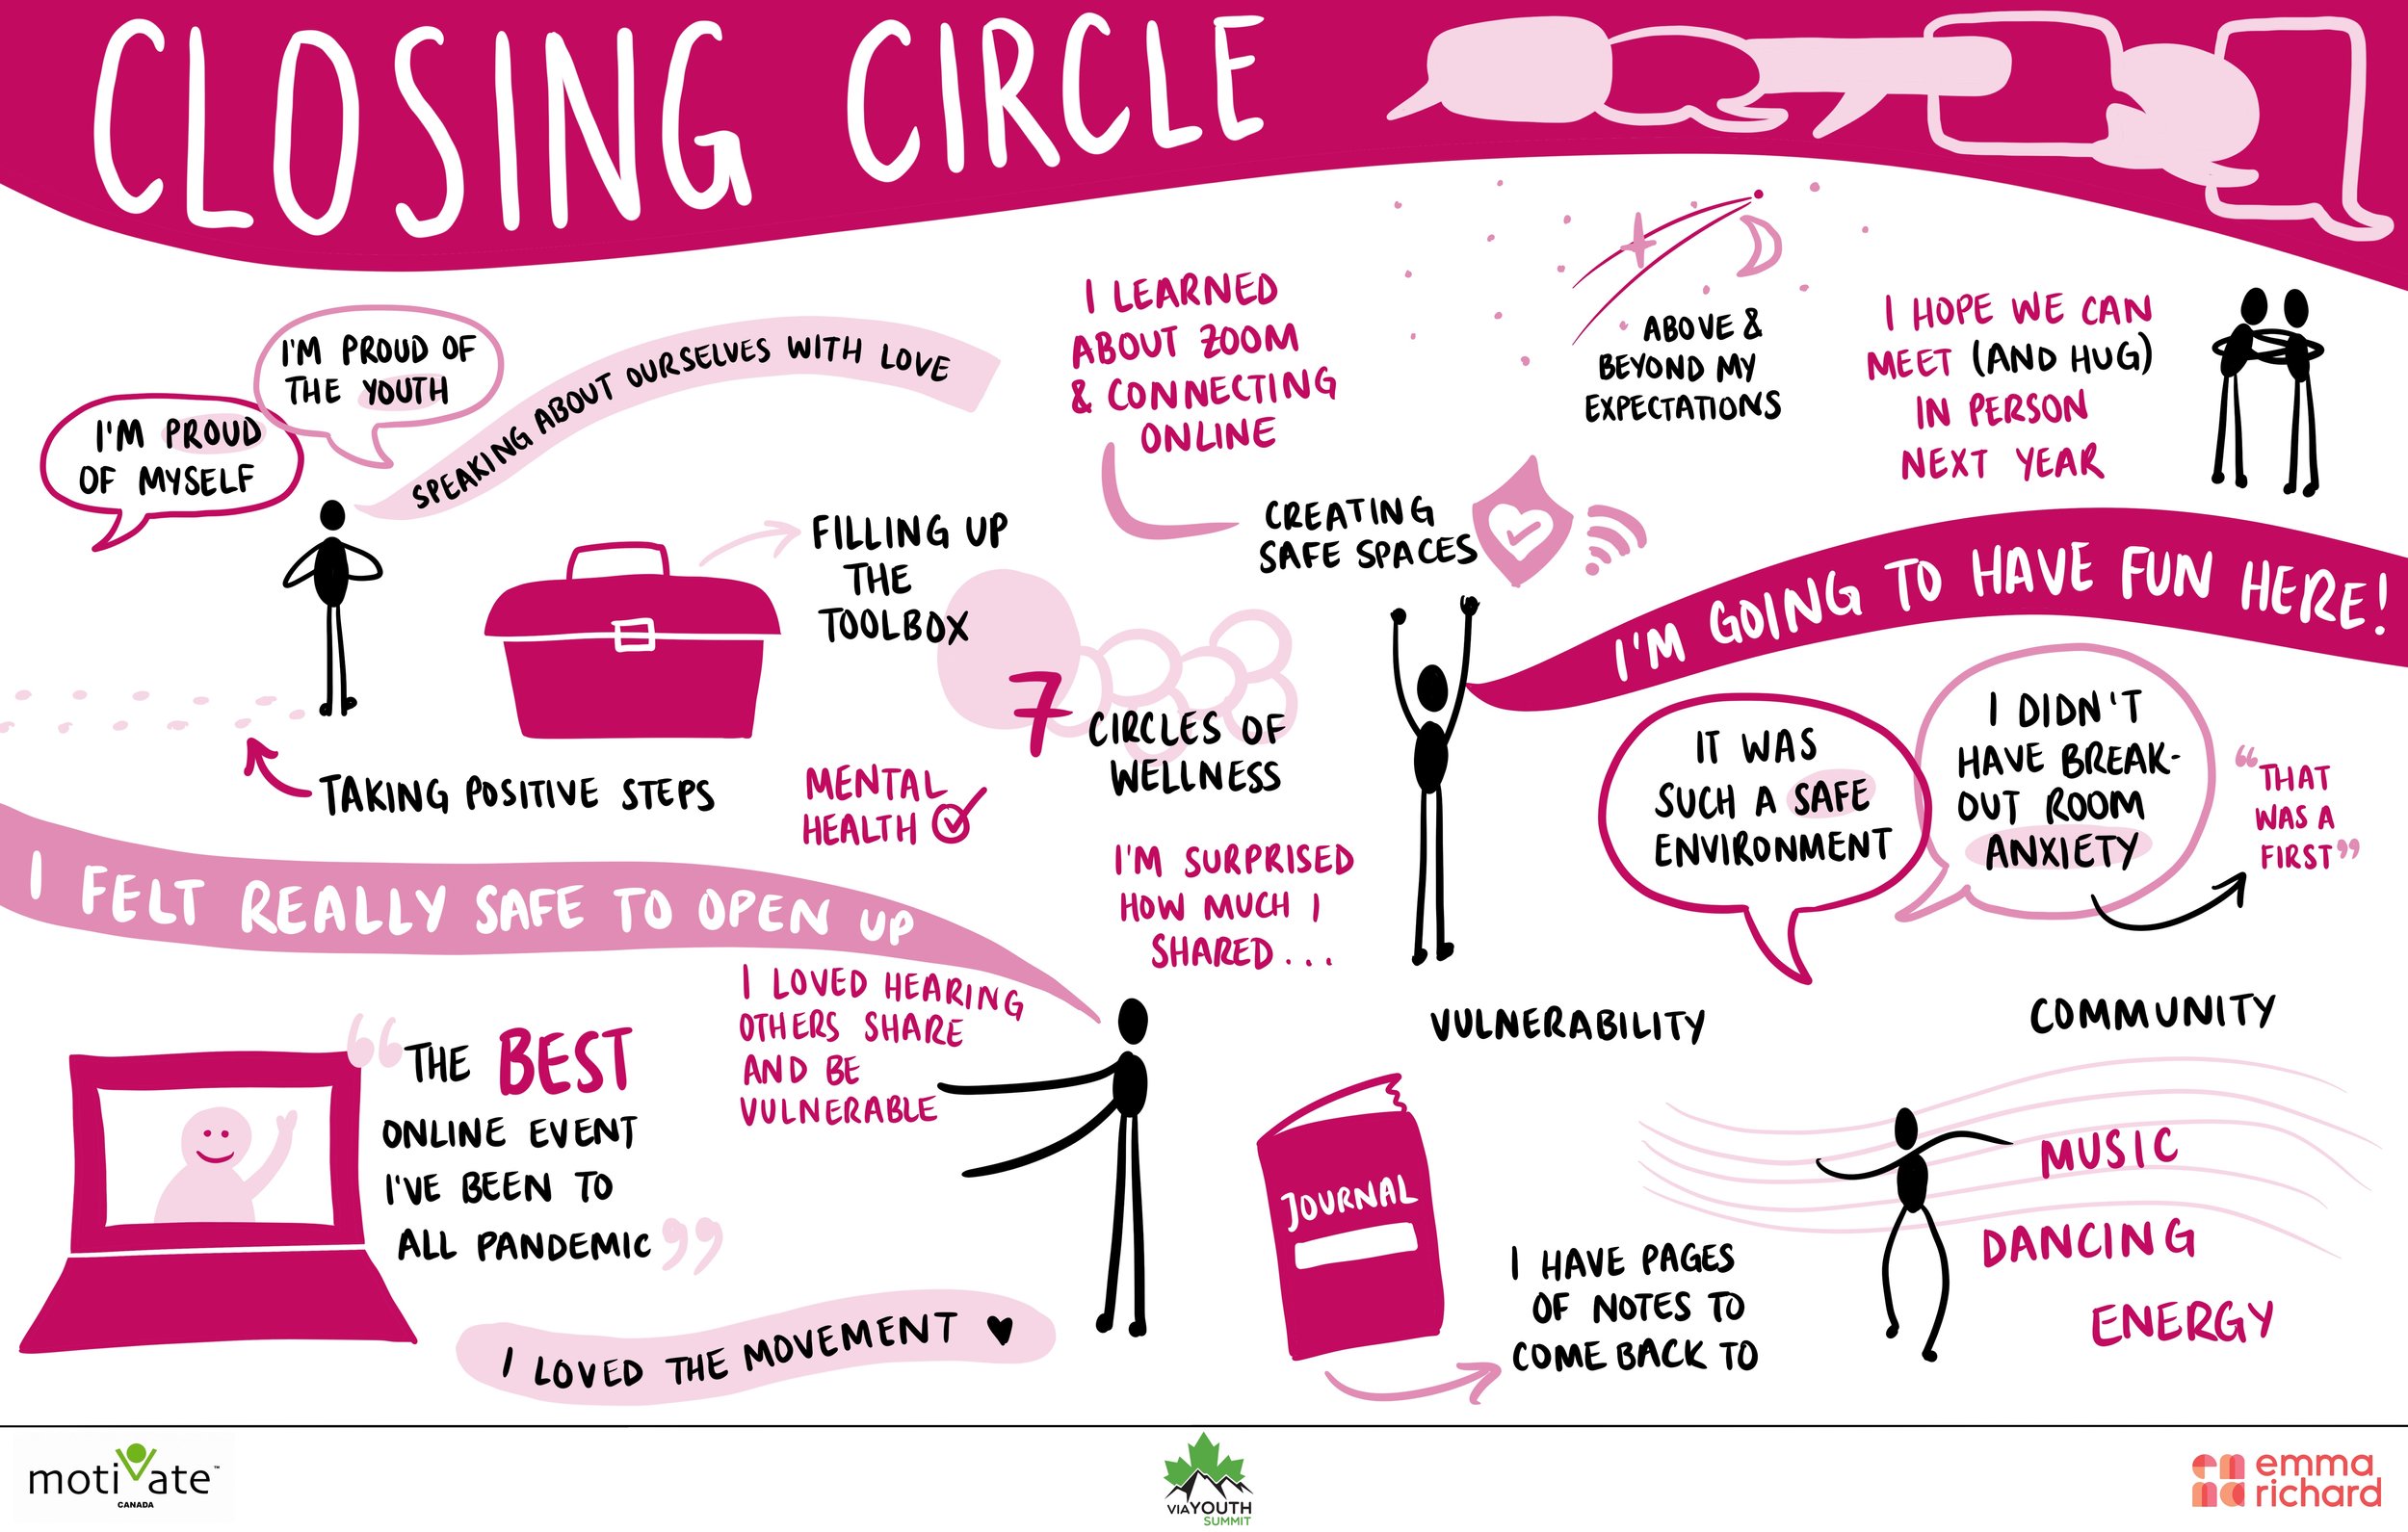 CLOSING CIRCLE
I'M PROUD OF
THE YOUTH
I'M PROUD
OF MYSELF
SPEAKING ABOUT OURSELVES WITH LOVE
I LEARNED
ABOUT ZOOM
& CONNECTING
ONLINE
ABOVE &
BEYOND MY
EXPECTATIONS
I HOPE WE CAN
MEET (AND HUG)
IN PERSON
NEXT YEAR
FILLING UP
THE
TOOLBOX
CREATING
SAFE SPACES
I'M GOING TO HAVE FUN HERE!
7 CIRCLES OF
WELLNESS
TAKING POSITIVE STEPS
MENTAL
HEALTH
IT WAS
SUCH A SAFE
ENVIRONMENT
I DIDN'T
HAVE BREAK-
OUT ROOM
ANXIETY
"THAT
WAS A
FIRST"
I FELT REALLY SAFE TO OPEN UP
I'M SURPRISED
HOW MUCH I
SHARED...
I LOVED HEARING
OTHERS SHARE
AND BE
VULNERABLE
"THE BEST
ONLINE EVENT
I'VE BEEN TO
ALL PANDEMIC"
I LOVED THE MOVEMENT ♥
VULNERABILITY
COMMUNITY
JOURNAL
I HAVE PAGES
OF NOTES TO
COME BACK TO
MUSIC
DANCING
ENERGY
motivate™
CANADA
VIAYOUTH
SUMMIT
emma
richard